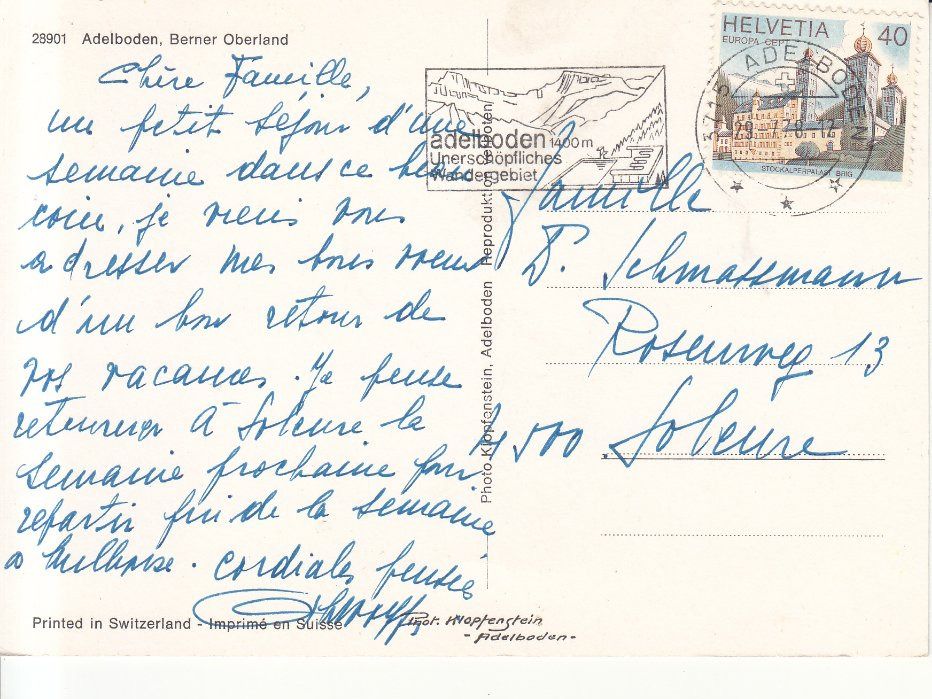 28901 Adelboden, Berner Oberland
Chère Famille,
un petit séjour d'une
semaine dans ce beau
coin, je viens vous
adresser mes bons voeux
d'un bon retour de
vos vacances. Je pense
retourner à Soleure la
semaine prochaine pour
repartir fin de la semaine
à Mulhouse. cordiales pensées
Printed in Switzerland - Imprimé en Suisse
Phot. Klopfenstein
- Adelboden -
Photo Klopfenstein, Adelboden Reproduktion verboten
adelboden 1400m
Unerschöpfliches
Wandergebiet
HELVETIA 40
EUROPA CEPT
STOCKALPERPALAST BRIG
3715 ADELBODEN
Famille
P. Schmassmann
Rosenweg 13
4500 Soleure